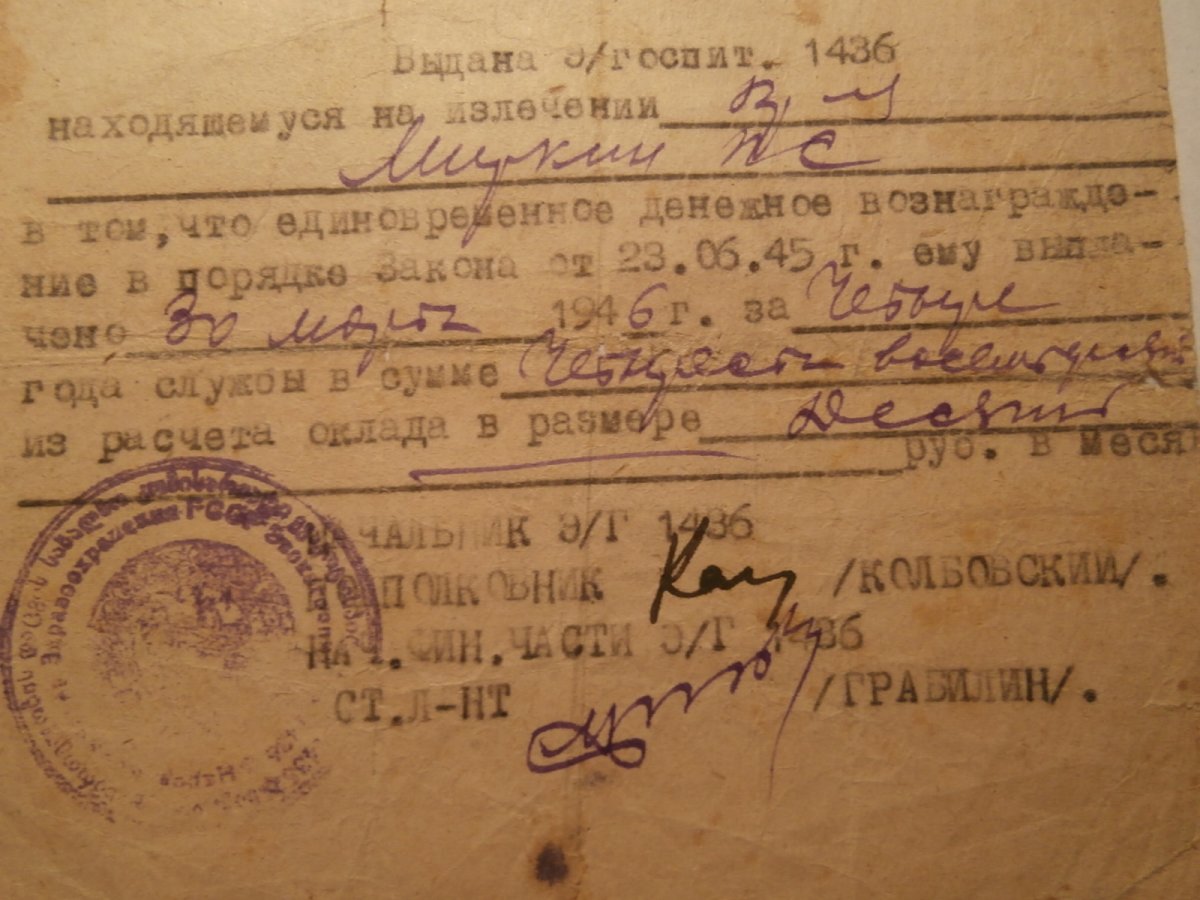 Выдана Э/госпит. 1436
находящемуся на излечении
Мицкин
в том, что единовременное денежное вознагражде-
ние в порядке Закона от 23.06.45 г. ему выпла-
чено 30 марта 1946 г. за Четыре
года службы в сумме Четыреста восемьдесят
из расчета оклада в размере Десять
руб. в меся
НАЧАЛЬНИК Э/Г 1436
ПОЛКОВНИК /КОЛБОВСКИЙ/.
НАЧ.ФИН.ЧАСТИ Э/Г 1436
СТ.Л-НТ /ГРАБИЛИН/.
Здравоохранения ГССР